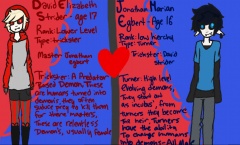 David Elizabeth
Strider - age 17
Rank: Lower Level
Type: trickster
Master: Jonathan
Egbert
Trickster: A Predator
Based Demon. These
are humans turned into
demons. they often
seduce prey to kill them
for there masters,
These are relentless
Demons, usually Female
Jonathan Marian
Egbert - Age 16
Rank: low
Type: Turner
Trickster: David
Strider
Turner: High level
Evolving demons,
They start out
as incubai, from
turners they become
Turners have the ability
To change humans
into demons - All Male